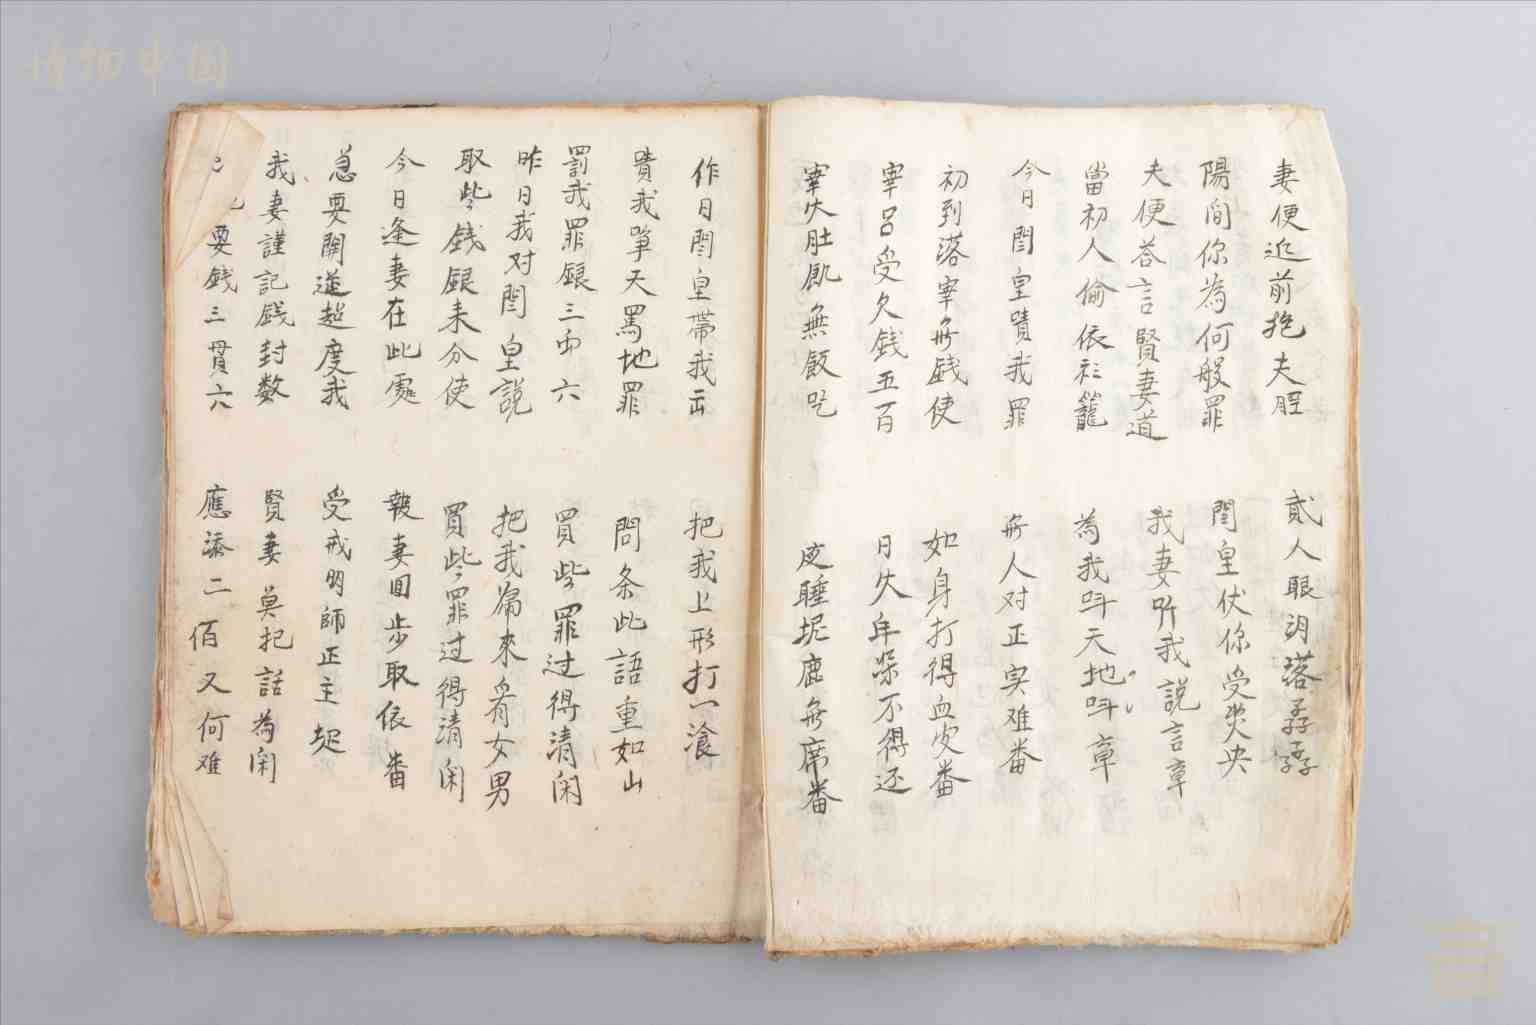 妻便近前抱夫脛 貳人眼泪落孖孖
陽间你為何般罪 閆皇伏你受災央
夫便荅言賢妻道 我妻听我說言章
當初人偷依衫籠 為我呌天地呌章
今日閆皇責我罪 無人对正実难番
初到落宰無銭使 如身打得血皮番
宰呂受久銭五百 日久年深不得还
宰伙肚飢無飯吃 夜睡坭鹿無席番
作日閆皇帶我出 把我上形打一
責我箏天罵地罪 問条此語重如山
罰我罪銀三 六 買些罪过得清闲
昨日我对閆皇説 把我 來看女男
取些銭銀未分使 買些罪过得清闲
今日逢妻在此處 報妻回步取依番
急要開道超度我 受戒明師正主
我妻謹記銭封数 賢妻莫把話為闲
要銭三貫六 應添二佰又何难
博物中国